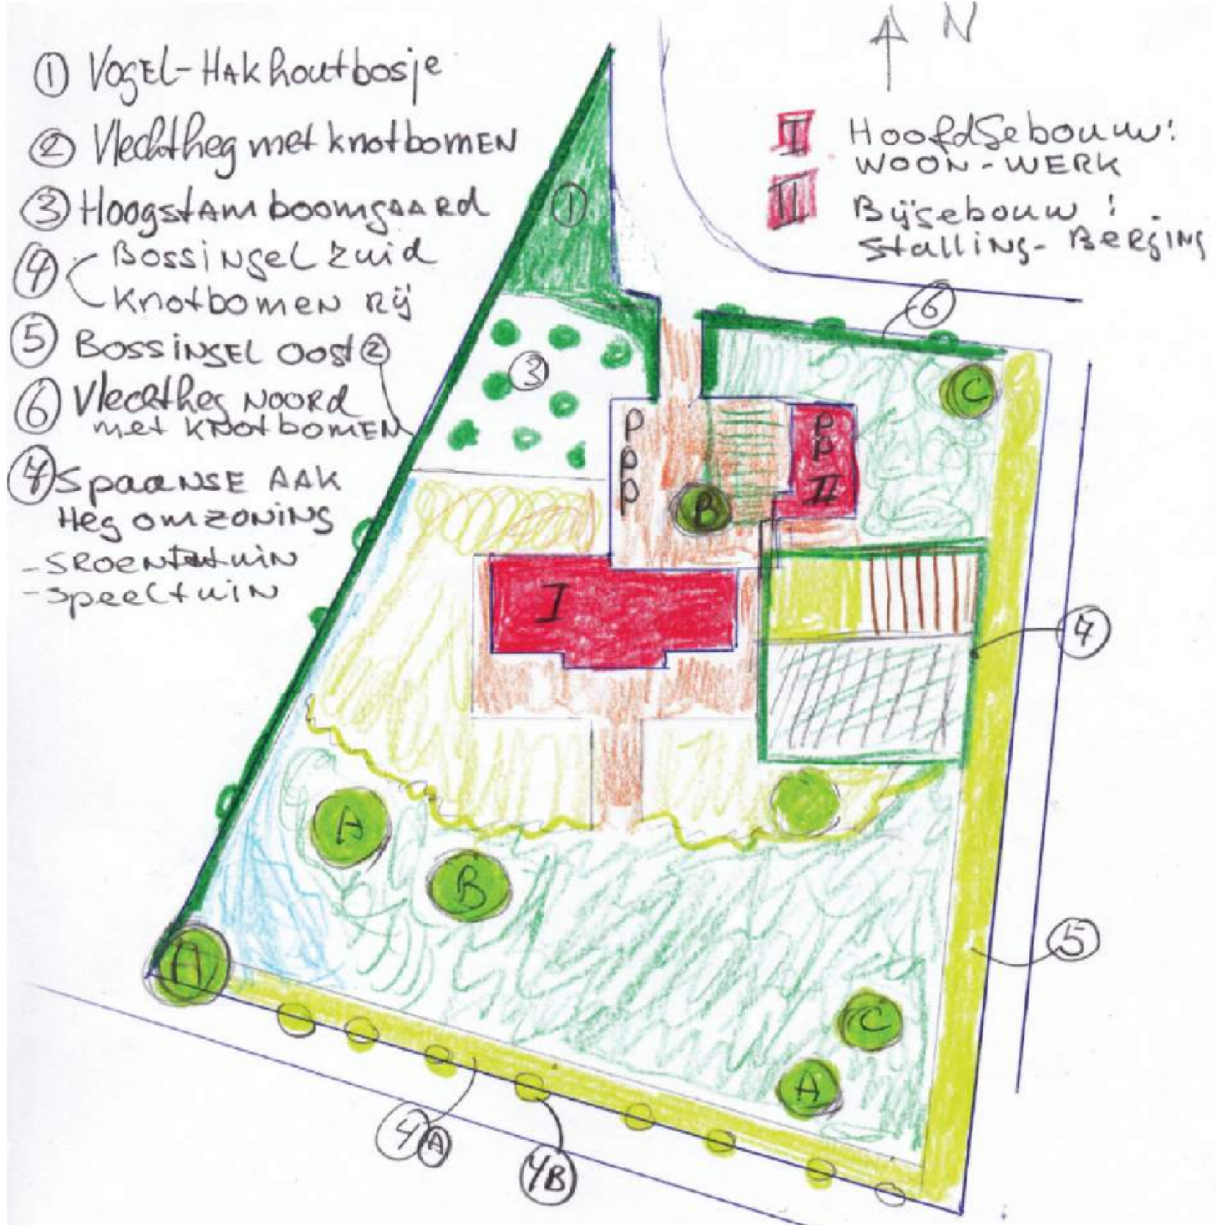 ① Vogel-Hakhoutbosje
② Vlechtheg met knotbomen
③ Hoogstam boomgaard
④ Bossingel zuid
Knotbomen rij
⑤ Bossingel oost
⑥ Vlechtheg Noord
met knotbomen
⑦ Spaanse Aak
Heg omzoning
- Groentetuin
- Speeltuin
N
I Hoofdgebouw:
Woon-Werk
II Bijgebouw:
Stalling-Berging
①
⑥
②
③
C
P
P
P
P
P
II
B
I
⑦
A
B
A
⑤
C
A
4A
4B